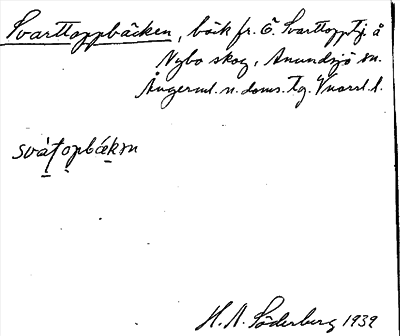 Svarttoppbäcken, bäck fr. Ö. Svarttopptj. å
Nybo skog, Anundsjö sn.
Ångerml. n. doms. tg. Vnorrl. l.
svàṭop̀bækən
H. A. Söderberg 1939